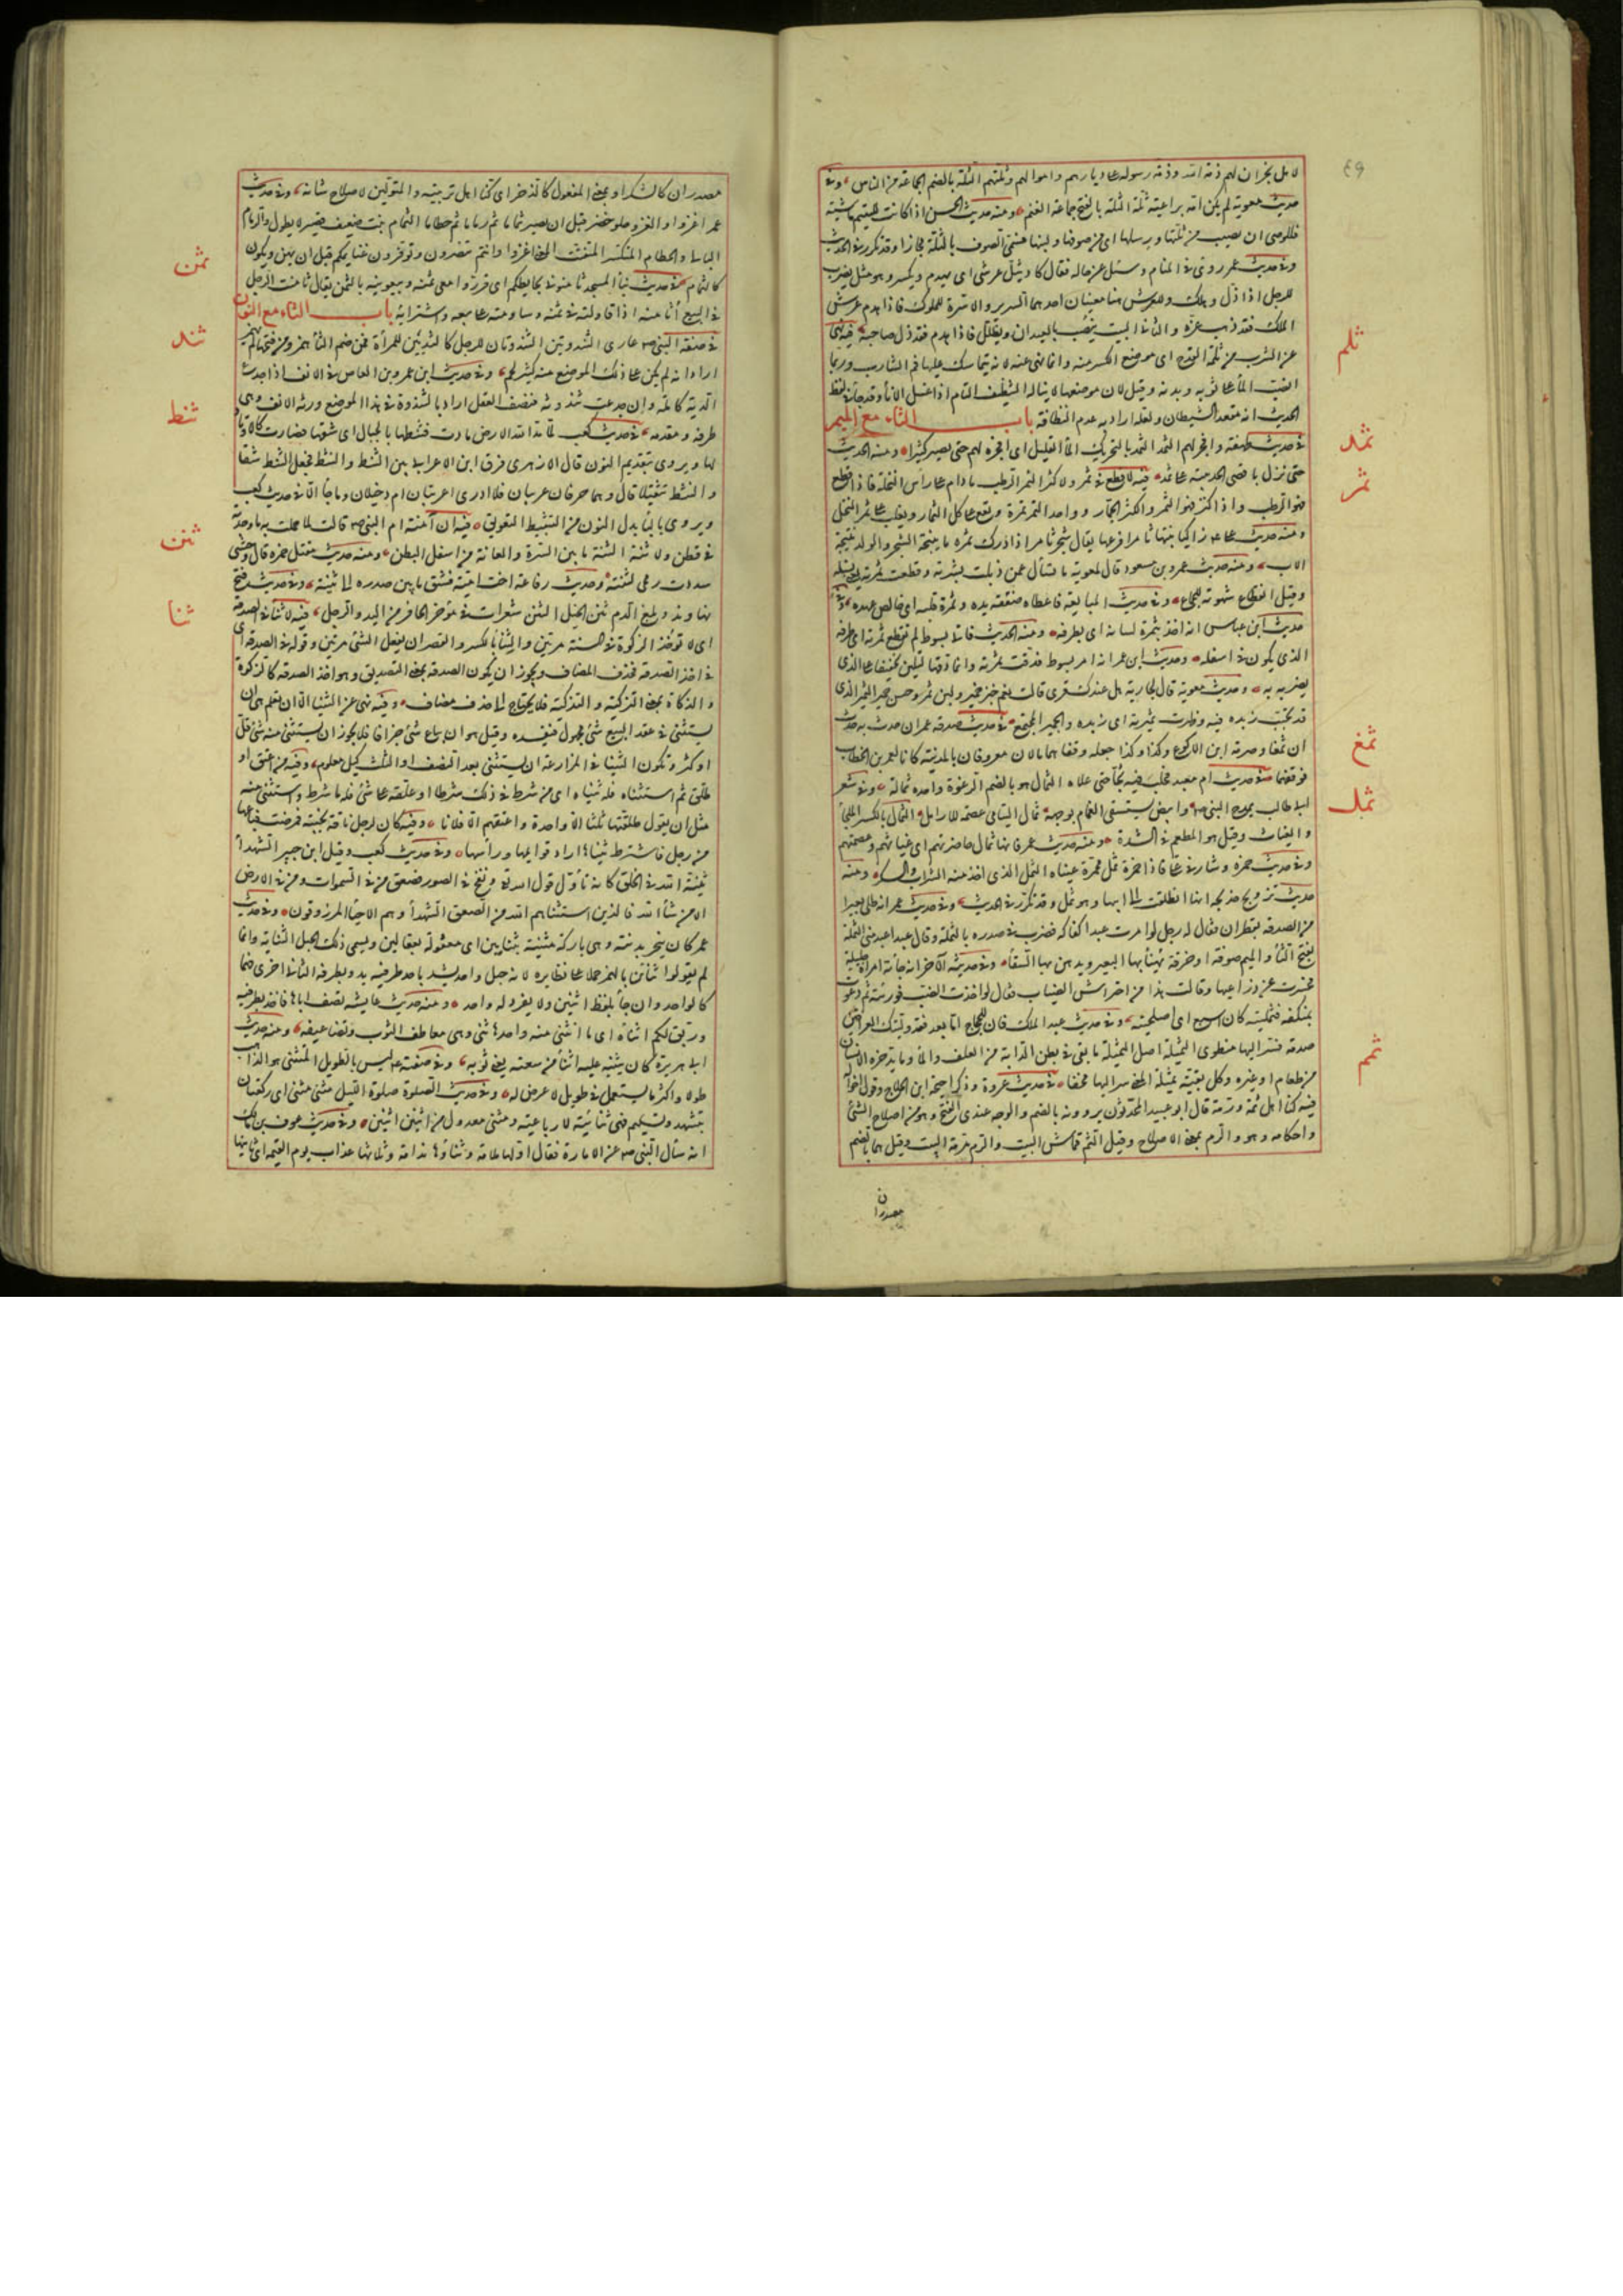 ٤٩
لاهل نجران لهم ذمة الله وذمة رسوله على ديارهم واموالهم وثلتهم الثلة بالضم الجماعة من الناس، وفى
حديث معوية لم يكن امه براعية ثلة الثلة بالفتح جماعة الغنم ومنه حديث الحسن اذا كانت لليتيم ماشية
فللوصى ان يصيب من ثلتها ورسلها اى من صوفها ولبنها فسمى الصوف بالثلة مجازا وقد تكرر فى الحديث
وفى حديث عمر روئى فى المنام وسئل عن حاله فقال كاد يثل عرشى اى يهدم ويكسر وهو مثل يضرب
للرجل اذا ذل وهلك وللعرش هنا معنيان احدهما السرير والاسرة للملوك فاذا هدم عرش
الملك فقد ذهب عزه والثانى البيت ينصب بالعيدان ويظلل فاذا هدم فقد ذل صاحبه فيه نهى
ثلم
عن الشرب من ثلمة القدح اى موضع الكسر منه وانما نهى عنه لانه لا يتماسك عليها فم الشارب وربما
انصب الماء على ثوبه وبدنه وقيل لان موضعها لا يناله التنظيف التام اذا غسل الاناء وقد جاء فى لفظ
الحديث انه مقعد الشيطان ولعله اراد به عدم النظافة باب الثاء مع الميم
ثمد
فى حديث طهفة وافجر لهم الثمد الثمد بالتحريك الماء القليل اى افجره لهم حتى يصير كثيرا ومنه الحديث
ثمر
حتى نزل باقصى الحديبية على ثمد فيه لا قطع فى ثمر ولا كثر الثمر الرطب ما دام على راس النخلة فاذا قطع
فهو الرطب واذا كنز فهو التمر والكثر الجمار وواحد الثمر ثمرة ويقع على كل الثمار ويغلب على ثمر النخل
ومنه حديث على زاكيا نبتها ثامرا فرعها يقال شجر ثامر اذا ادرك ثمره ما ينتجه الشجر والولد نتيجة
الاب، ومنه حديث عمرو بن مسعود قال لمعوية ما تسأل عمن ذبلت بشرته وقطعت ثمرته يعنى نسله
وقيل انقطاع شهوته للجماع، وفى حديث المبايعة فاعطاه صفقة يده وثمرة قلبه اى خالص عهده، وفى
حديث ابن عباس انه اخذ بثمرة لسانه اى بطرفه ومنه الحديث فاتى بسوط لم تقطع ثمرته اى طرفه
الذى يكون فى اسفله وحديث ابن عمر انه امر بسوط فدقت ثمرته وانما دقها لتلين تخفيفا على الذى
يضرب به وحديث معوية قال لجارية هل عندك قرى قالت نعم خبز خمير ولبن ثمير وحيس جمير الثمير الذى
قد تحبب زبده فيه وظهرت ثميرته اى زبده والجمير المجتمع فى حديث صدقة عمر ان حدث به حدث
ثمغ
ان ثمغا وصرمة ابن الاكوع وكذا وكذا جعله وقفا هما مالان معروفان بالمدينة كانا لعمر بن الخطاب
فوقفهما فى حديث ام معبد فحلب فيه ثجا حتى علاه الثمال هو بالضم الرغوة واحده ثمالة، وفى شعر
ثمل
ابى طالب يمدح النبى ص وابيض يستسقى الغمام بوجهه ثمال اليتامى عصمة للارامل الثمال بالكسر الملجأ
والغياث وقيل هو المطعم فى الشدة ومنه حديث عمر فانها ثمال حاضرتهم اى غياثهم وعصمتهم
وفى حديث حمزة وشارفى على فاذا حمزة ثمل محمرة عيناه الثمل الذى اخذ منه الشراب والسكر ومنه
حديث تزويج خديجة انها انطلقت الى ابيها وهو ثمل وقد تكرر فى الحديث، وفى حديث عمر انه طلى بعيرا
من الصدقة بقطران فقال له رجل لو امرت عبدا كفاكه فضرب فى صدره بالثملة وقال عبد اعبد منى الثملة
بفتح الثاء والميم صوفة او خرقة يهنأ بها البعير ويدهن بها السقاء وفى حديثه الاخر انه جاءته امراة جليلة
فحسرت عن ذراعيها وقالت هذا من احتراش الضباب فقال لو اخذت الضب فوريته ثم دعوت
بمكتفه فثملته كان اسبع اى اصلحته، وفى حديث عبد الملك قال للحجاج اما بعد فقد وليتك العراقين
صدمة فسر اليها منطوى الثميلة اصل الثميلة ما بقى فى بطن الدابة من العلف والماء وما يدخره الانسان
من طعام او غيره وكل بقية ثميلة المعنى سر اليها مخفا فى حديث عروة وذكر احيحة ابن الجلاح وقول اخواله
ثم
فيه كنا اهل ثمه ورمه قال ابو عبيد المحدثون يروونه بالضم والوجه عندى الفتح وهو من اصلاح الشئ
واحكامه وهو والرم بمعنى الاصلاح وقيل الثم قماش البيت والرم مرمة البيت وقيل هما بالضم
مصدران
مصدران كالشكر او بمعنى المفعول كالذخر اى كنا اهل تربيته والمتولين لاصلاح شانه، وفى حديث
عمر اغزوا والغزو حلو خضر قبل ان يصير ثماما ثم رماما ثم حطاما الثمام نبت ضعيف قصير لا يطول والرمام
البالى والحطام المتكسر المتفتت المعنى اغزوا وانتم تنصرون وتوفرون غنايمكم قبل ان يهن ويكون
ثمن
كالثمام فى حديث بناء المسجد ثامنونى بحايطكم اى قرروا معى ثمنه وبيعونيه بالثمن يقال ثامنت الرجل
فى المبيع اثامنه اذا قاولته فى ثمنه وساومته على بيعه واشترائه باب الثاء مع النون
ثند
فى صفة النبى ص عارى الثندوتين الثندوتان للرجل كالثديين للمرأة فمن ضم الثاء همز ومن فتحها لم يهمز
اراد انه لم يكن على ذلك الموضع منه كثير لحم، وفى حديث ابن عمرو بن العاص فى الانف اذا جدع
الدية كاملة وان جدعت ثندوته فنصف العقل اراد بالثندوة فى هذا الموضع روثة الانف وهى
ثنط
طرفه ومقدمه، فى حديث كعب لما مد الله الارض مادت فثنطها بالجبال اى شقها فصارت كالاوتاد
لها ويروى بتقديم النون قال الازهرى فرق ابن الاعرابى بين الثنط والنثط فجعل الثنط شقا
والنثط تثقيلا قال وهما حرفان غريبان فلا ادرى اعربيان ام دخيلان وما جاء الا فى حديث كعب
ويروى بالباء بدل النون من التثبيط التعويق فيه ان آمنة ام النبى ص قالت لما حملت به ما وجدته
ثنن
فى قطن ولا ثنة الثنة ما بين السرة والعانة من اسفل البطن، ومنه حديث مقتل حمزة قال وحشى
سددت رمحى لثنته وحديث رفاعة اخت امية فشق ما بين صدره الى ثنته، وفى حديث فتح
نهاوند وبلغ الدم ثنن الخيل الثنن شعرات فى مؤخر الحافر من اليد والرجل، فيه لا ثنا فى الصدقة
ثنا
اى لا تؤخذ الزكوة فى السنة مرتين والثنا بالكسر والقصر ان يفعل الشئ مرتين وقوله فى الصدقة اى
فى اخذ الصدقة فحذف المضاف ويجوز ان يكون الصدقة بمعنى التصديق وهو اخذ الصدقة كالزكوة
والذكاة بمعنى التزكية والتذكية فلا يحتاج الى حذف مضاف، وفيه نهى عن الثنيا الا ان تعلم هى ان
يستثنى فى عقد البيع شئ مجهول فيفسده وقيل هو ان يباع شئ جزافا فلا يجوز ان يستثنى منه شئ قل
او كثر وتكون الثنيا فى المزارعة ان يستثنى بعد النصف او الثلث كيل معلوم، وفيه من اعتق او
طلق ثم استثناه فله ثنياه اى من شرط فى ذلك شرطا او علقه على شئ فله ما شرط واستثنى منه
مثل ان يقول طلقتها ثلثا الا واحدة واعتقهم الا فلانا وفيه كان لرجل ناقة نجيبة فمرضت فباعها
من رجل فاشترط ثنياها اراد قوايمها وراسها، وفى حديث كعب وقيل ابن جبير الشهداء
ثنية الله فى الخلق كانه تأول قول الله تع ونفخ فى الصور فصعق من فى السموات ومن فى الارض
الا من شاء الله فالذين استثناهم الله من الصعق الشهداء وهم الاحياء المرزوقون وفى حديث
عمر كان ينحر بدنته وهى باركة مثنية بثنايين اى معقولة بعقالين ويسمى ذلك الحبل الثناية وانما
لم يقولوا ثنائين بالهمز حملا على نظايره لانه حبل واحد يشد باحد طرفيه يد وبطرفه الثانى اخرى فهما
كالواحد وان جاء بلفظ اثنين ولا يفرد له واحد، ومنه حديث عايشة تصف اباها فاخذ بطرفيه
وربق لكم اثناه اى ما انثنى منه واحدها ثنى وهى معاطف الثوب وتضاعيفه، ومنه حديث
ابى هريرة كان يثنيه عليه اثناء من سعته يعنى ثوبه، وفى صفته ع ليس بالطويل المتثنى هو الذاهب
طولا واكثر ما يستعمل فى طويل لا عرض له وفى حديث الصلوة صلوة الليل مثنى مثنى اى ركعتان
بتشهد وتسليم فهى ثنائية لا رباعية ومثنى معدول من اثنين اثنين، وفى حديث عوف بن مالك
انه سأل النبى ص عن الامارة فقال اولها ملامة وثناؤها ندامة وثلاثها عذاب يوم القيمة اى ثانيها